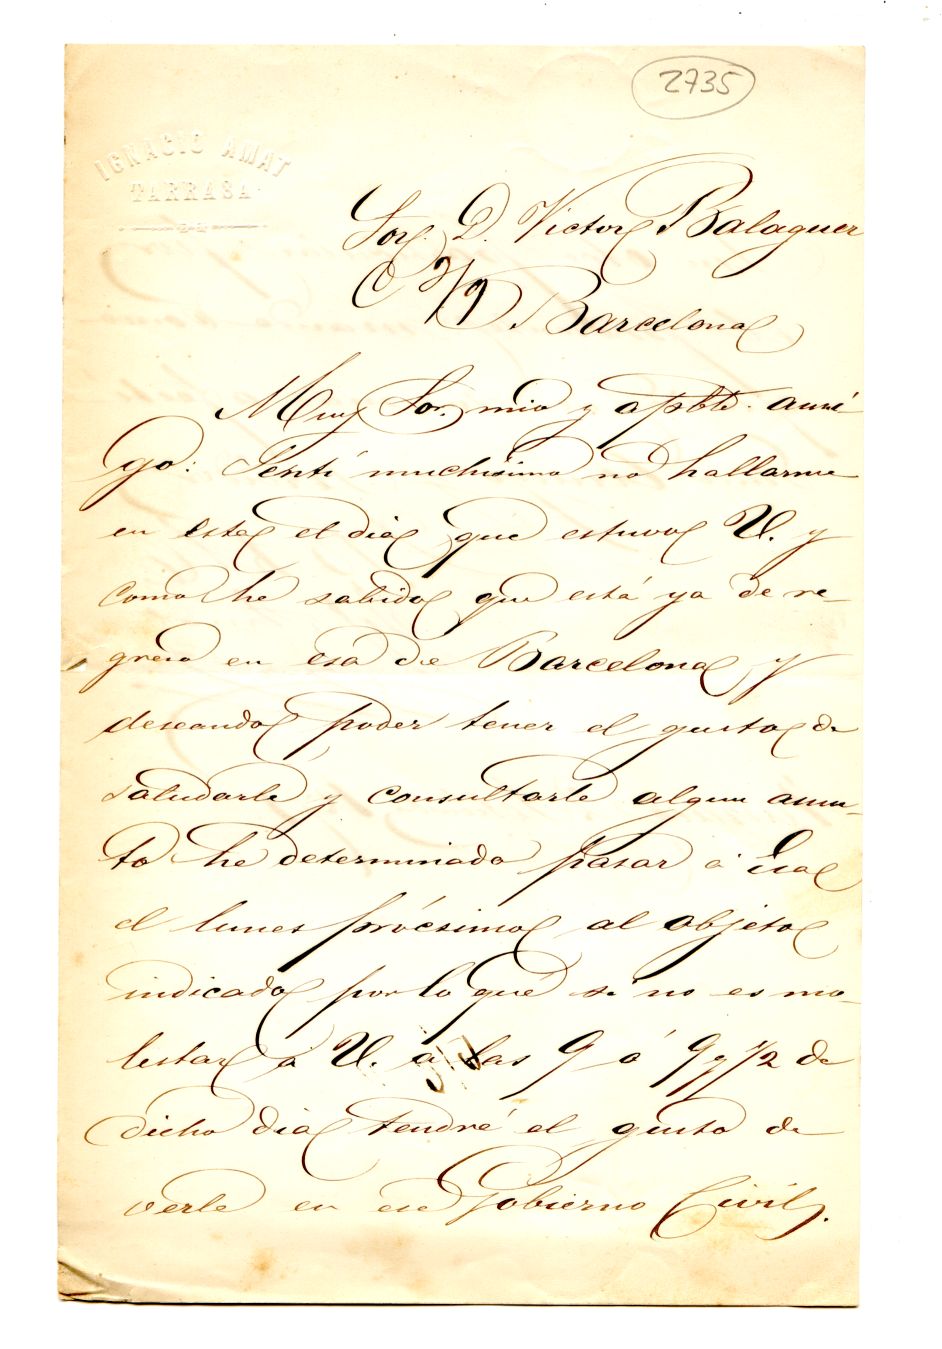 2735
IGNACIO AMAT
TARRASA
Sor. D. Victor Balaguer
Barcelona
Muy Sor. mio y apble. ami
go: Sentí muchisimo no hallarme
en esta el dia que estuvo V. y
como he sabido que está ya de re-
greso en esa de Barcelona y
deseando poder tener el gusto de
saludarle y consultarle algun asun-
to he determinado pasar á esa
el lunes prócsimo al objeto
indicado por lo que si no es mo-
lestar á V. a las 9 ó 9 y 1/2 de
dicho dia tendré el gusto de
verle en ese Gobierno Civil.